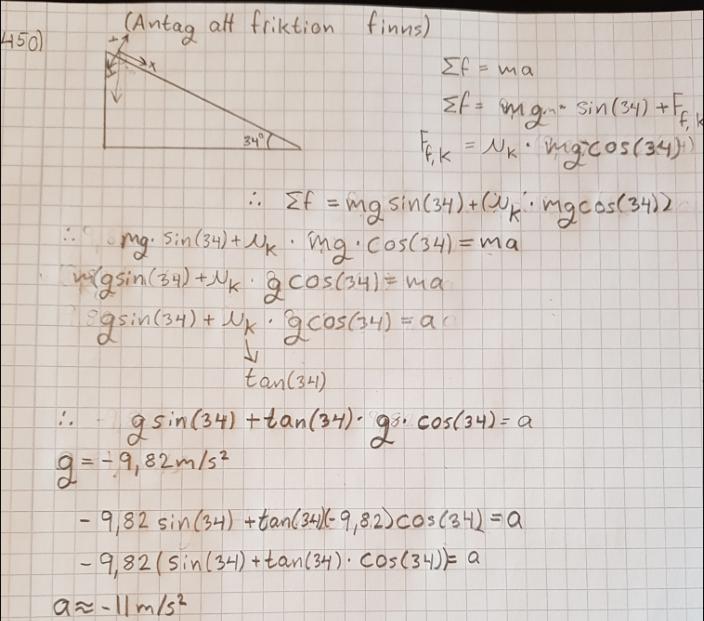 (Antag att friktion finns)
450)
+
x
34°
Σf = ma
Σf = mg · sin(34) + F_f,k
F_f,k = μ_k · mg·cos(34)
∴ Σf = mg sin(34) + (μ_k · mg cos(34))
∴ mg · sin(34) + μ_k · mg · cos(34) = ma
m(g sin(34) + μ_k · g cos(34) = ma
g sin(34) + μ_k · g cos(34) = a
↓
tan(34)
∴ g sin(34) + tan(34) · g · cos(34) = a
g = -9,82 m/s²
-9,82 sin(34) + tan(34)(-9,82)cos(34) = a
-9,82(sin(34) + tan(34) · cos(34)) = a
a ≈ -11 m/s²